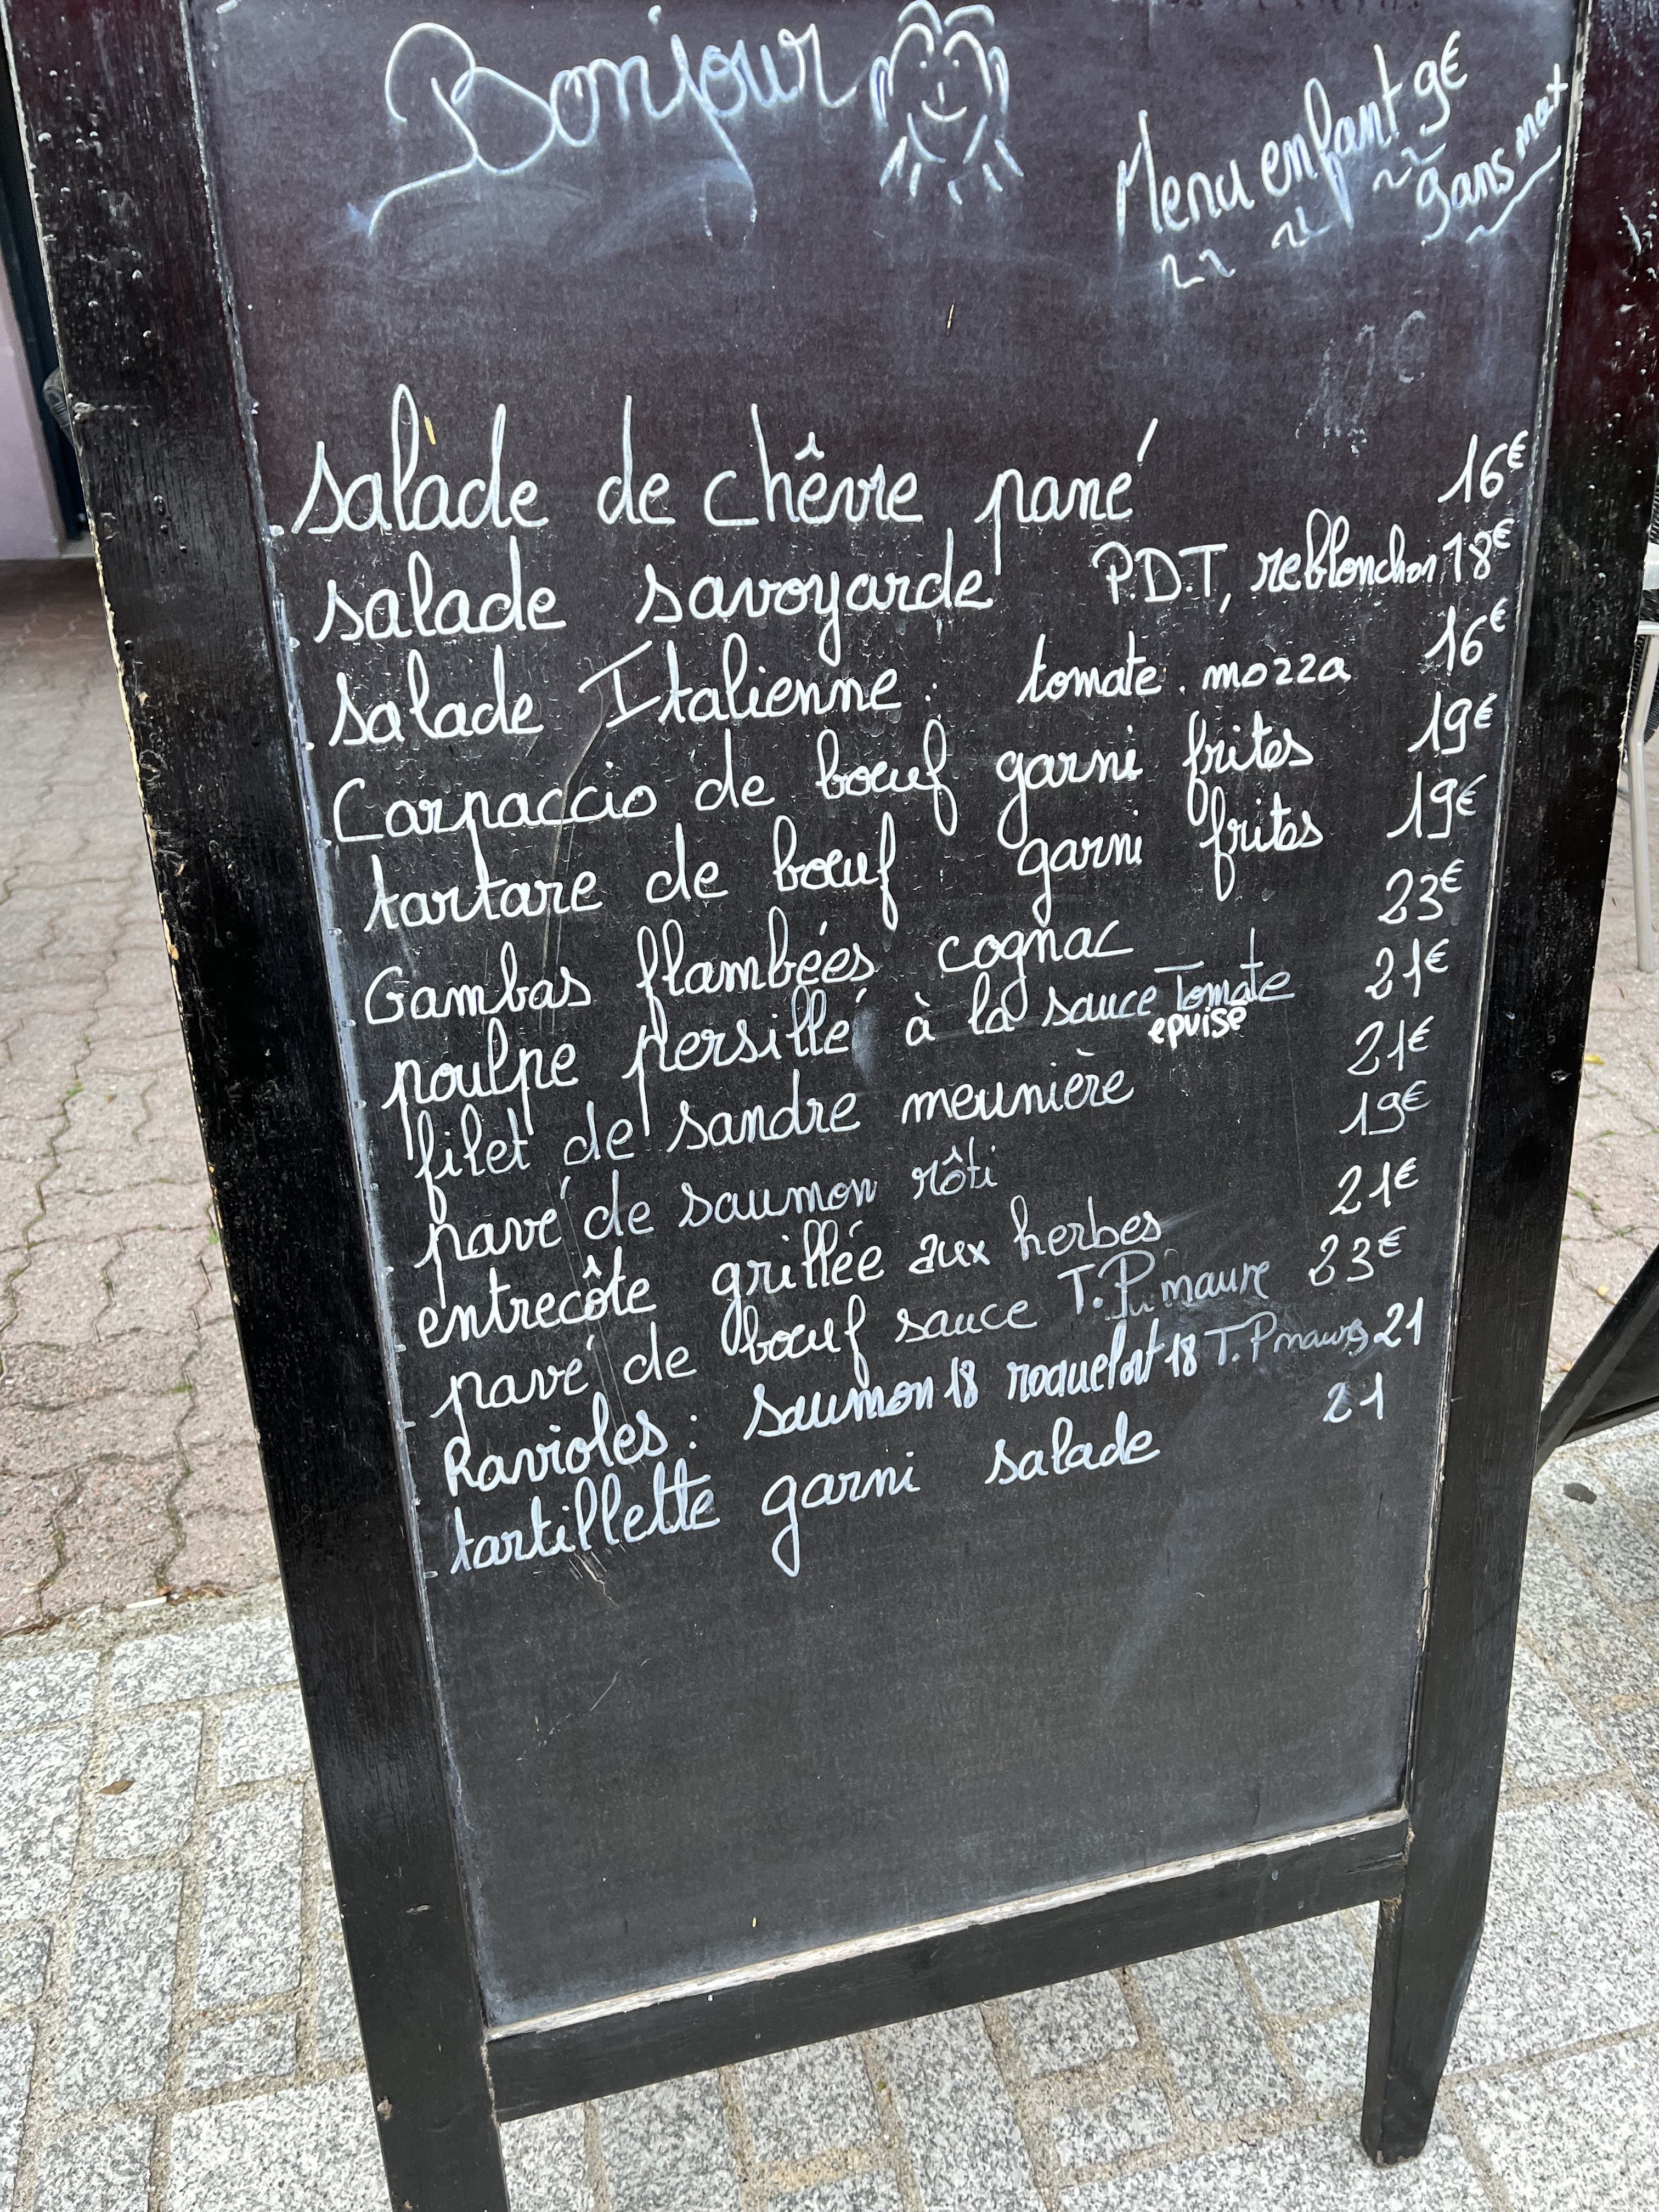 Bonjour
Menu enfant 9€
9ans max
salade de chêvre pané 16€
salade savoyarde P.D.T, reblonchon 18€
salade Italienne : tomate. mozza 16€
Carpaccio de boeuf garni frites 19€
tartare de boeuf garni frites 19€
Gambas flambées cognac 23€
poulpe persillé à la sauce Tomate 21€
epuisé
filet de sandre meunière 21€
pavé de saumon rôti 19€
entrecôte grillée aux herbes 21€
pavé de boeuf sauce T.P. maure 23€
Ravioles : saumon 18 roquefort 18 T.P maures 21
tartillette garni salade 21